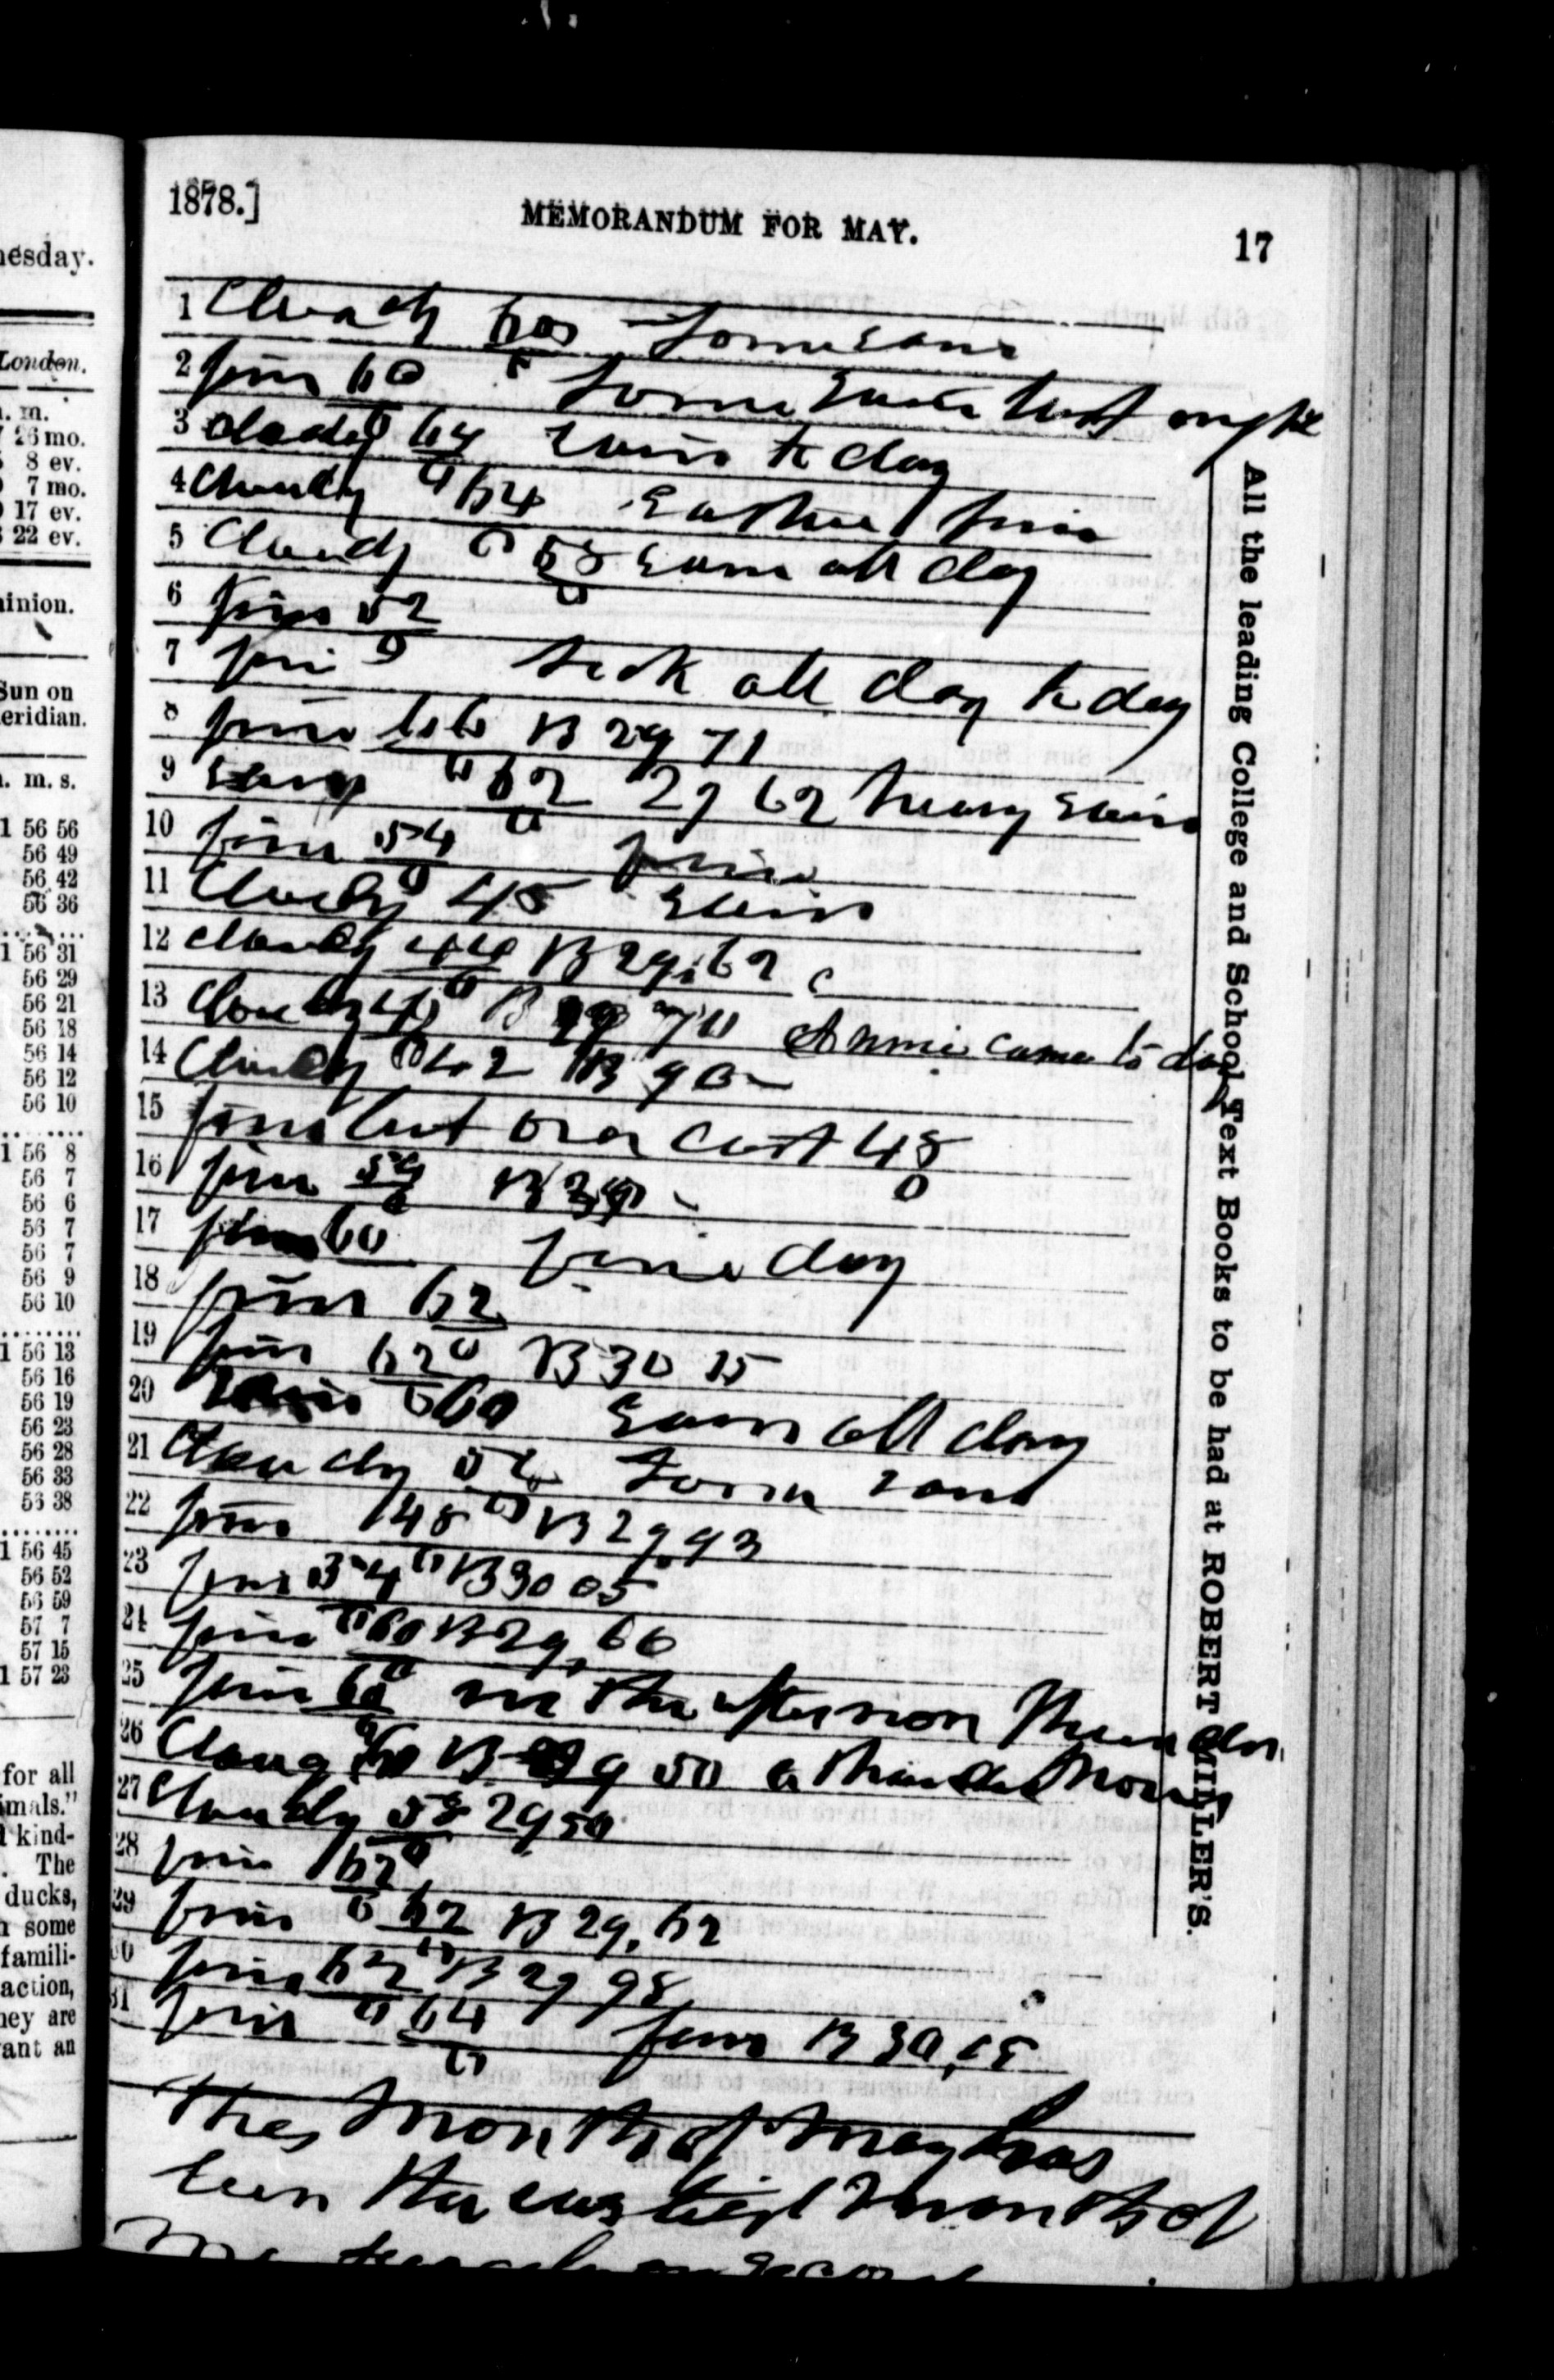 1878.]
MEMORANDUM FOR MAY.
17
1 Cloudy some rain
2 fine 60 some rain last night
3 cloudy 64 rain to day
4 Cloudy 64 fine
5 Cloudy 58 rain all day
6 fine 52
7 fine sick all day to day
8 fine 66 B 29 71
9 rain 62 29 62 heavy rain
10 fine 54 fine
11 Cloudy 45 rain
12 cloudy 44 B 29.62
13 Cloudy B 70 Annie came to day
14 Cloudy B
15 fine but over cast 48
16 fine B
17 fine 60 fine day
18 fine 62
19 fine 62 B 30 15
20 rain 60 rain all day
21 Cloudy some rain
22 fine 48 B 29 93
23 fine 54 B 30 05
24 fine 60 B 29,66
25 fine 60 in the afternoon
26 60 B 29 50 a
27 Cloudy 58 29 50
28 fine 62
29 fine 62 B 29,62
30 fine 62 B 29 98
31 fine 64 fine B 30
this month of may has
been the month of
All the leading College and School Text Books to be had at ROBERT MILLER'S.
nesday.
London.
. m.
26 mo.
8 ev.
7 mo.
17 ev.
22 ev.
inion.
Sun on
eridian.
. m. s.
1 56 56
56 49
56 42
56 36
1 56 31
56 29
56 21
56 18
56 14
56 12
56 10
1 56 8
56 7
56 6
56 7
56 7
56 9
56 10
1 56 13
56 16
56 19
56 23
56 28
56 33
56 38
1 56 45
56 52
56 59
57 7
57 15
1 57 23
for all
imals."
kind-
. The
ducks,
some
famili-
action,
hey are
ant an